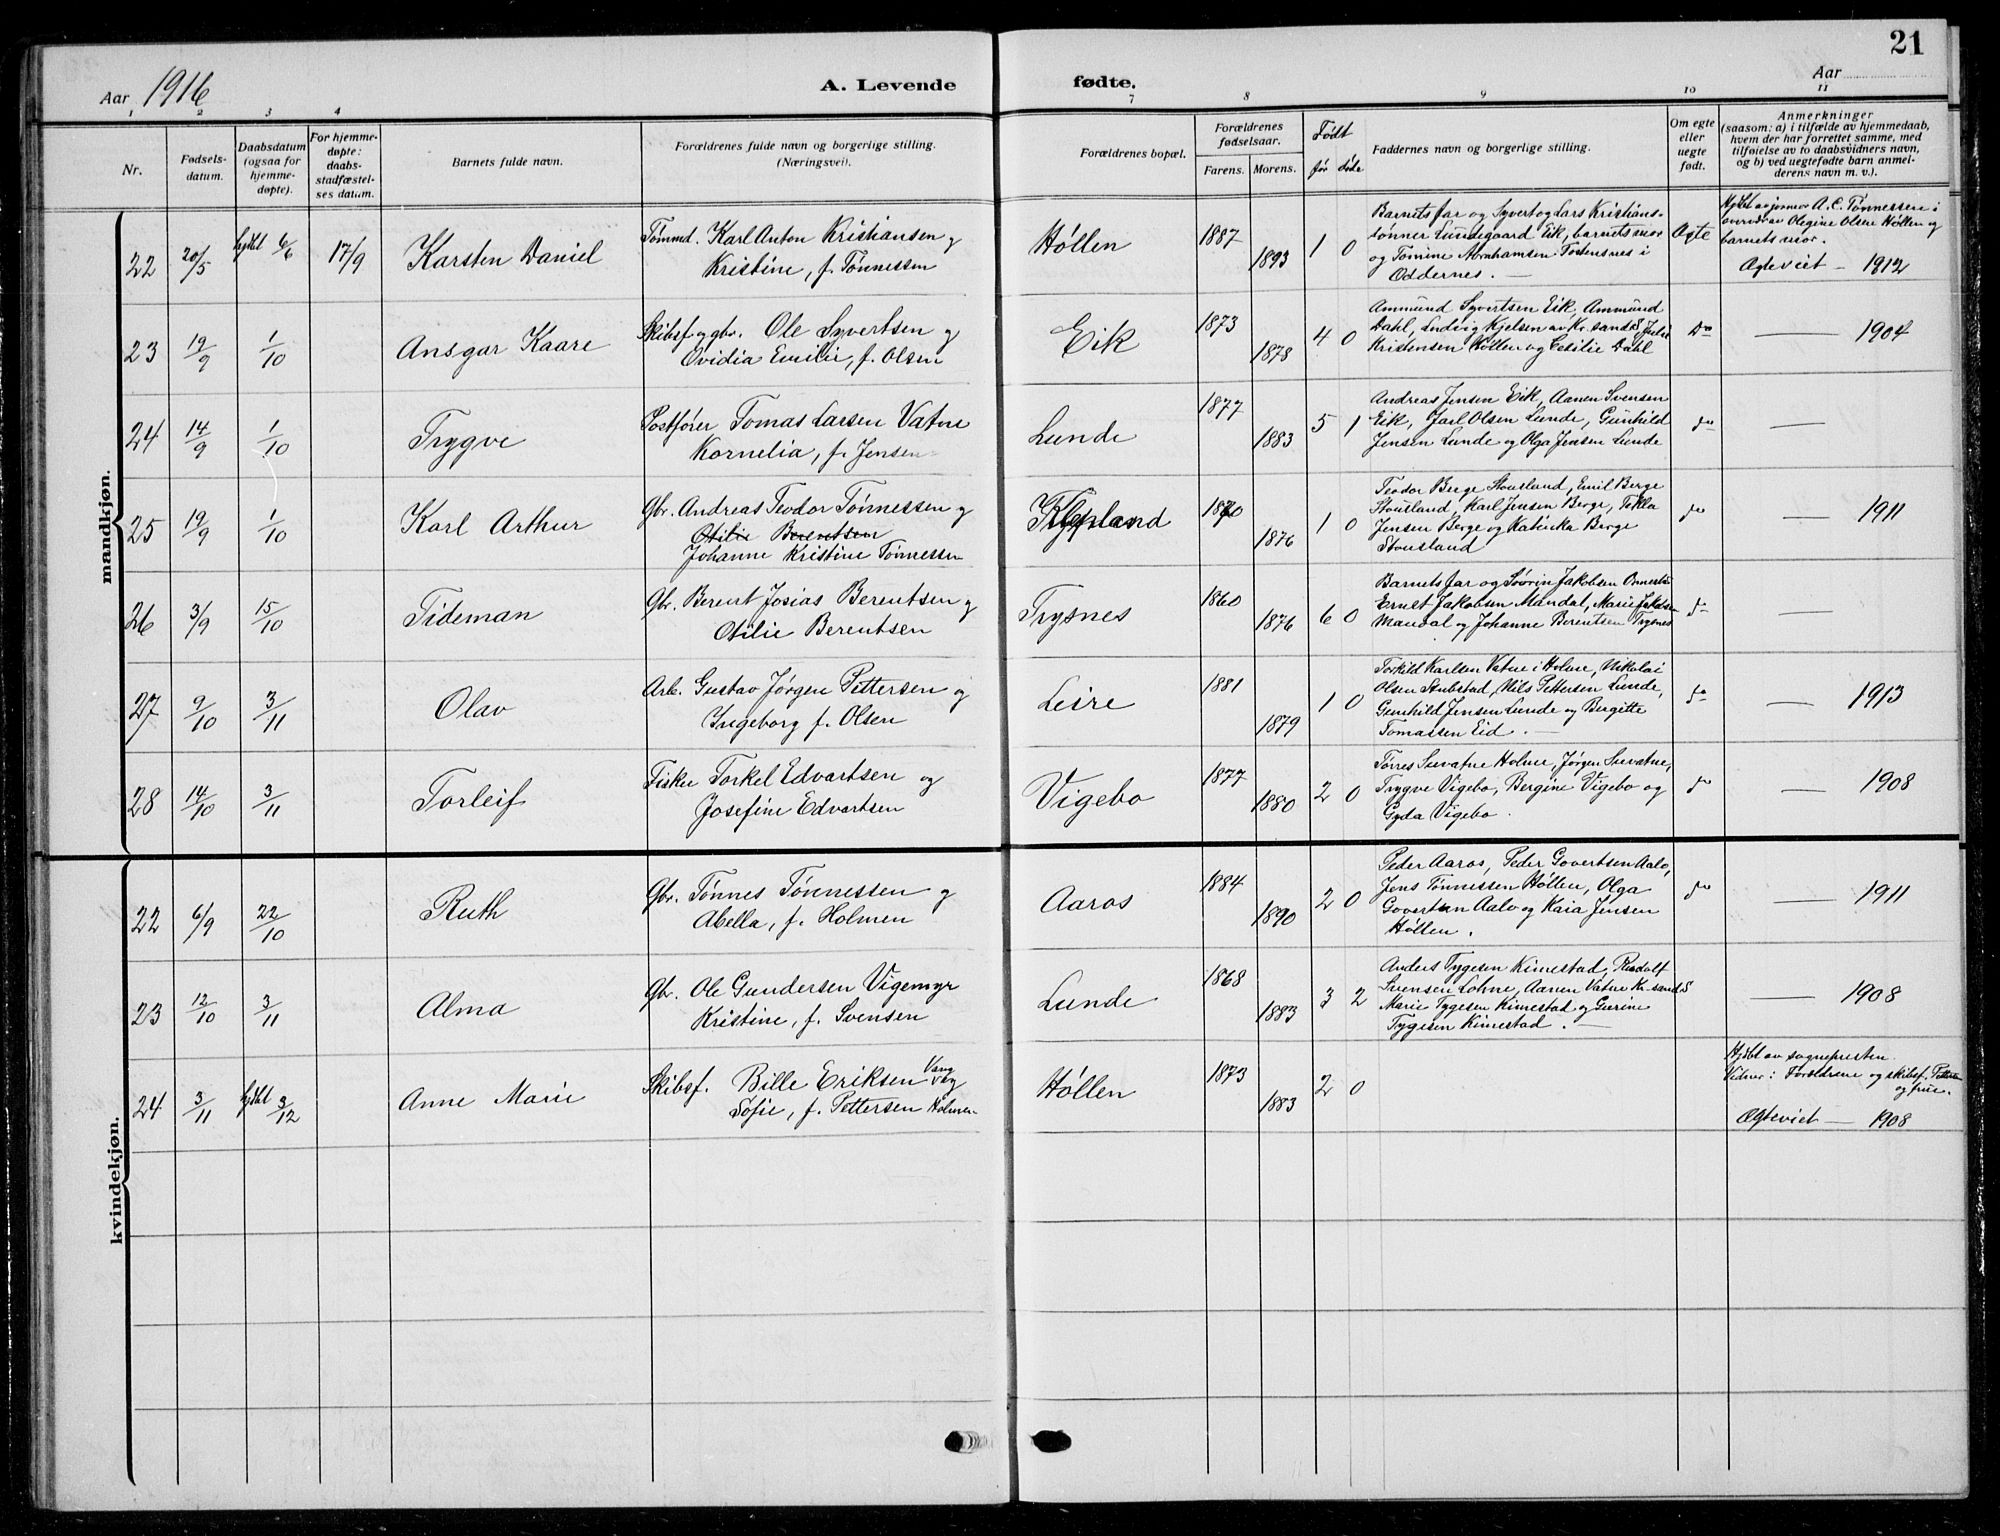 21
Aar 1916
A. Levende fødte.
Aar
1 2 3 4 7 8 9 10 11
Nr.
Fødsels-
datum.
Daabsdatum
(ogsaa for
hjemme-
døpte).
For hjemme-
døpte:
daabs-
stadfæstel-
ses datum.
Barnets fulde navn.
Forældrenes fulde navn og borgerlige stilling.
(Næringsvei).
Forældrenes bopæl.
Forældrenes
fødselsaar.
Farens. Morens.
Født
før døde
Faddernes navn og borgerlige stilling.
Om egte
eller
uegte
født.
Anmerkninger
(saasom: a) i tilfælde av hjemmedaab,
hvem der har forrettet samme, med
tilføielse av to daabsvidners navn,
og b) ved uegtefødte barn anmel-
derens navn m. v.).
mandkjøn.
22 20/5 hjdbt 6/6 17/9 Karsten Daniel
Tømmd. Karl Anton Kristiansen og
Kristine, f. Tønnessen
Høllen 1887 1893 1 0
Barnets far og Syvert og Lars Kristians-
sønner Lundegaard Eik, barnets mor
og Tomine Abrahamsen Fostensnes i
Oddernes.
Ægte
Hjdbt av jormor A. C. Tønnessen i
overvær av Olegine Olsen Høllen og
barnets mor.
Ægteviet - 1912
23 19/9 1/10 Ansgar Kaare
Skibsf. og gbr. Ole Syvertsen og
Ovidia Emilie, f. Olsen
Eik 1873 1878 4 0
Ammund Syvertsen Eik, Ammund
Dahl, Ludvig Kjelsen av Kr.sand S, Julie
Kristensen Høllen og Cecilie Dahl
Do — 1904
24 14/9 1/10 Trygve
Postfører Tomas Larsen Vatne
Kornelia, f. Jensen
Lunde 1877 1883 5 1
Andreas Jensen Eik, Aanen Svensen
Eik, Jarl Olsen Lunde, Gunhild
Jensen Lunde og Olga Jensen Lunde
do —
25 19/9 1/10 Karl Arthur
Gbr. Andreas Teodor Tønnessen og
Otilie Berentsen
Johanne Kristine Tønnessen
1870 1876 1 0
Teodor Berge Stousland, Emil Berge
Stousland, Karl Jensen Berge, Tekla
Jensen Berge og Katinka Berge
Stousland
do — 1911
26 3/9 15/10 Tideman
Gbr. Berent Josias Berentsen og
Otilie Berentsen
Trysnes 1860 1876 6 0
Barnets far og Søvrin Jakobsen
Ernst Jakobsen Mandal, Marie Jakobsen
Mandal og Johanne Berentsen Trysnes
do —
27 9/10 3/11 Olav
Arb. Gustav Jørgen Pettersen og
Ingeborg f. Olsen
Leire 1881 1879 1 0
Torkild Karlsen Vatne i Holme, Nikolai
Olsen Stubstad, Nils Pettersen Lunde,
Gunhild Jensen Lunde og Bergitte
Tomassen Eid.
do — 1913
28 14/10 3/11 Torleif
Fisker Torkel Edvartsen og
Josefine Edvartsen
Vigebo 1877 1880 2 0
Tørres Survatne Holme, Jørgen Survatne,
Trygve Vigebo, Bergine Vigebo og
Gyda Vigebo.
do — 1908
kvindekjøn.
22 6/9 22/10 Ruth
Gbr. Tønnes Tønnessen og
Abella, f. Holmen
Aaros 1884 1890 2 0
Peder Aaros, Peder Govertsen Aalo,
Jens Tønnessen Høllen, Olga
Govertsen Aalo og Kaia Jensen
Høllen.
do — 1911
23 12/10 3/11 Alma
Gbr. Ole Gundersen Vigemyr
Kristine, f. Svensen
Lunde 1868 1883 3 2
Anders Tygesen Kimestad, Rudolf
Sørensen Lohne, Aanen Vatne Kr.sand S
Marie Tygesen Kimestad og Gurine
Tygesen Kimestad.
— 1908
24 3/11 hjdbt 3/12 Anne Marie
Skibsf. Bille Eriksen Vang og
Sofie, f. Pettersen Holmen
Høllen 1873 1883 2 0
Hjdbt av sognepresten.
Vidner: Forældrene og skibsf. Pettersen
og frue.
Ægteviet — 1908